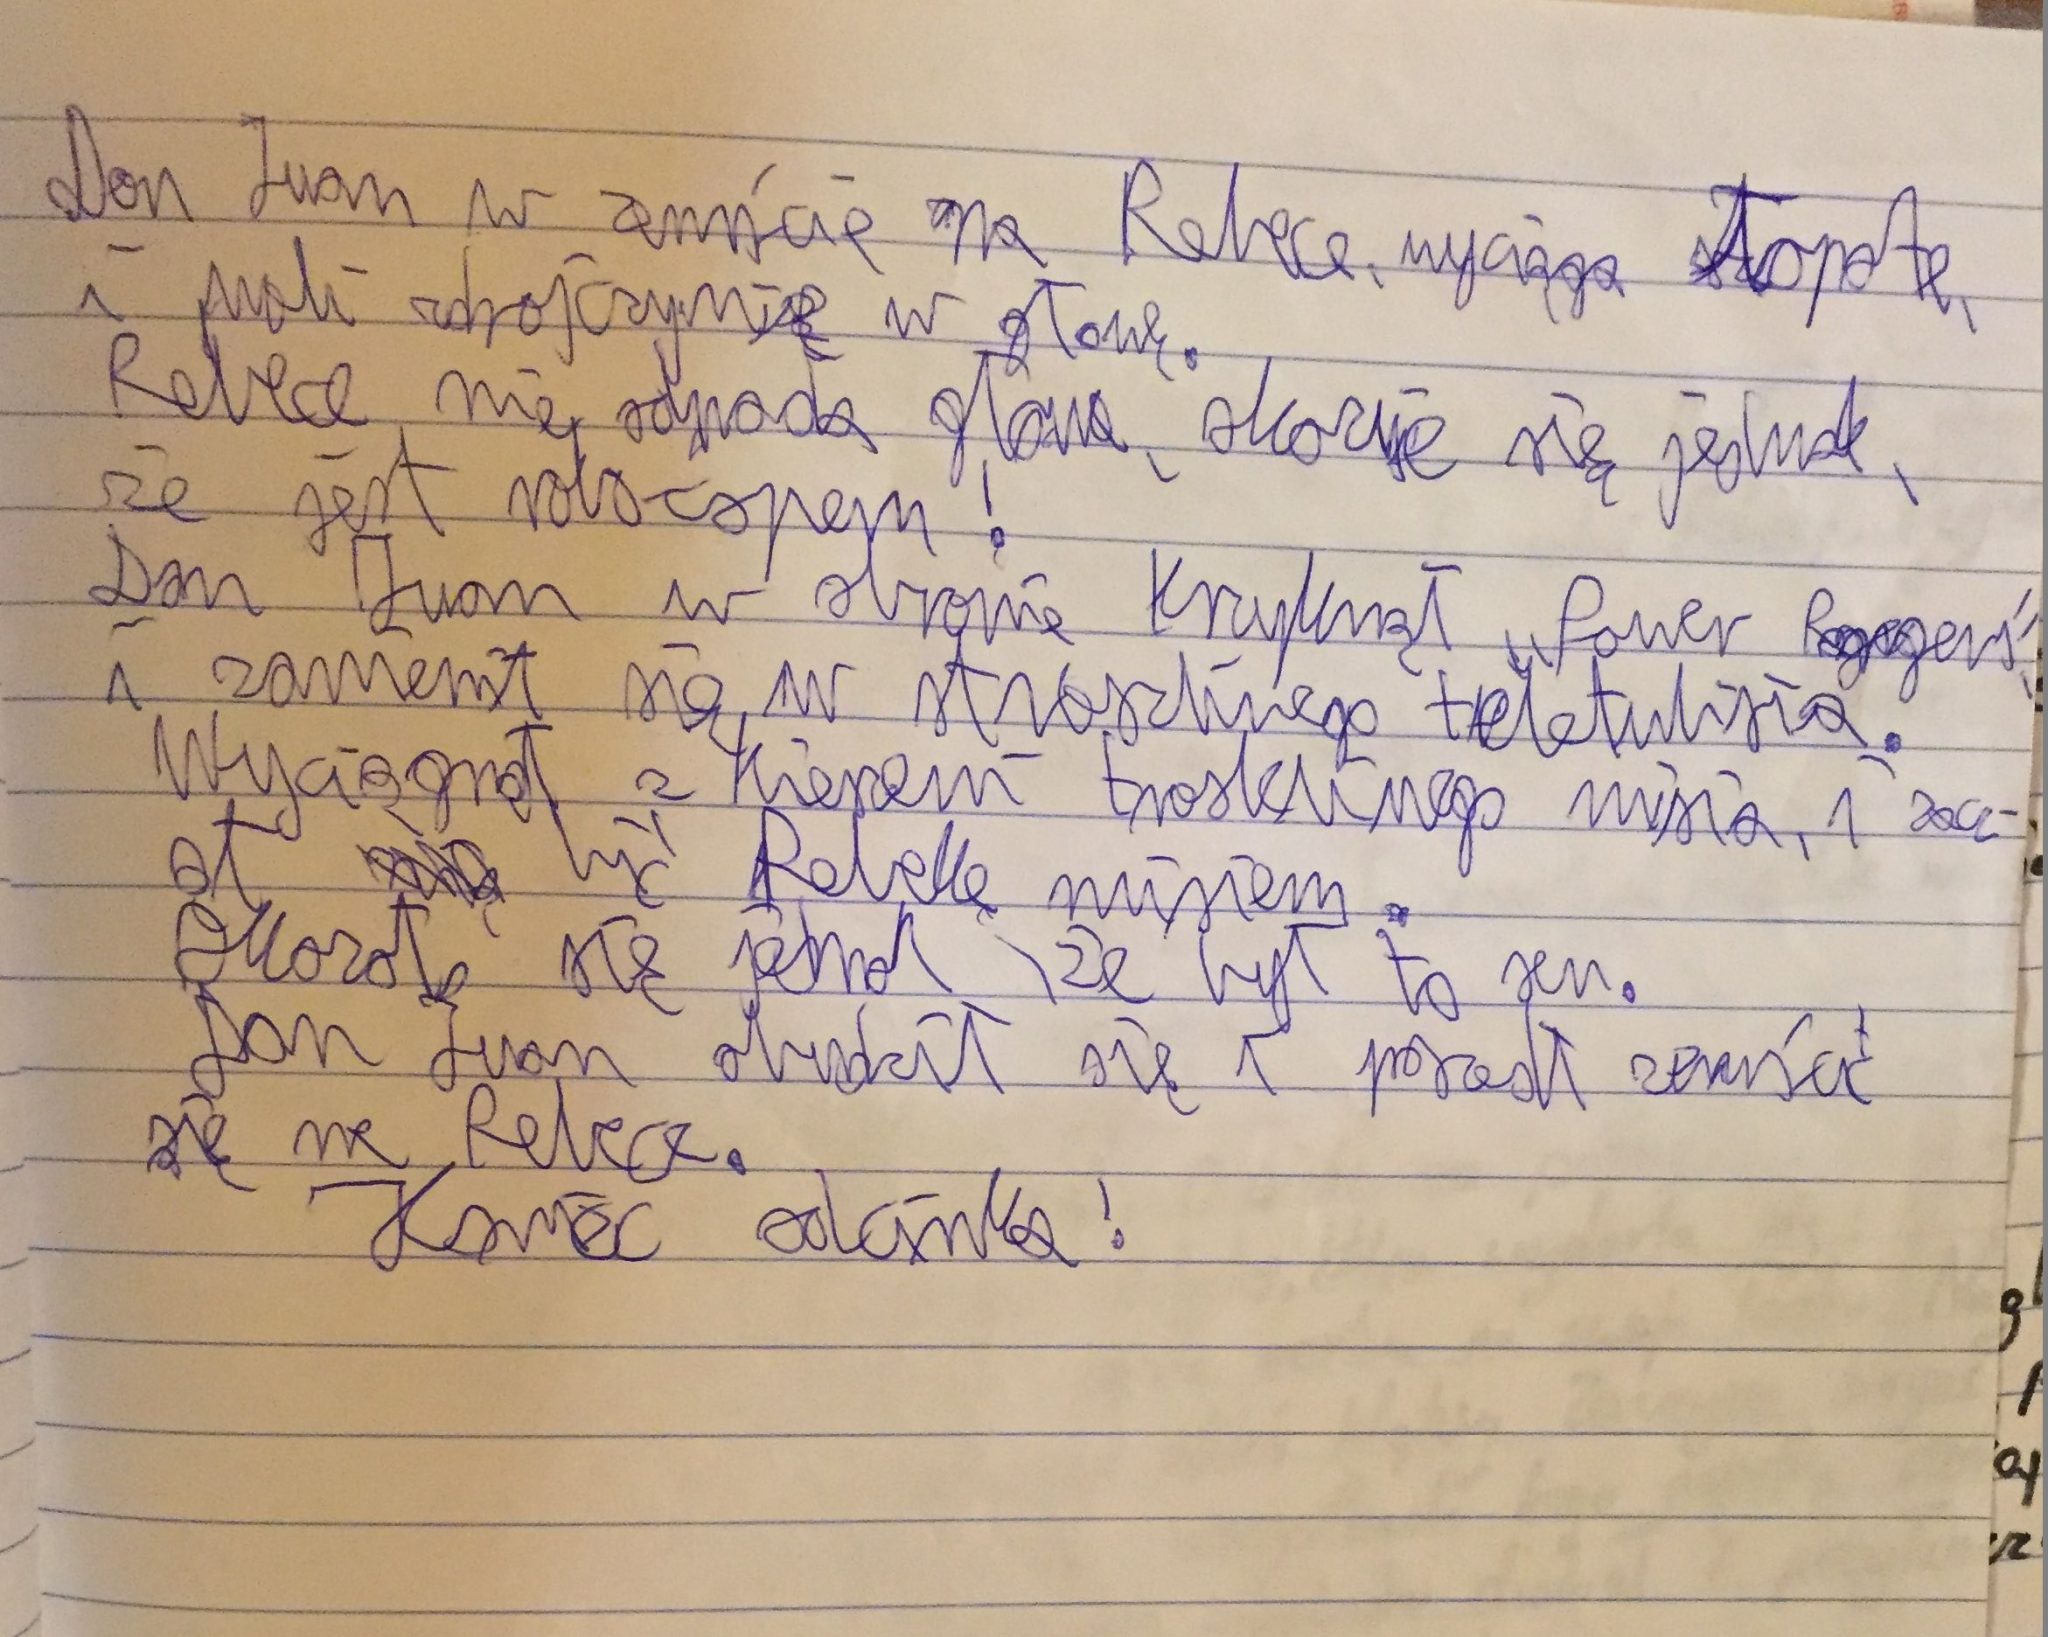 Don Juan w zemście na Rebece, wyciąga łopatę,
i wali zbrojczynię w głowę.
Rebece nie odpada głowa, okazuje się jednak,
że jest robocopem!
Don Juan w obronie krzyknął „Power Rangers",
i zamienił się w straszliwego teletubisia.
Wyciągnął z kieszeni troskliwego misia, i zacz-
ął bić Rebekę misiem.
Okazało się jednak, że był to sen.
Don Juan obudził się i poszedł zemścić
się na Rebece.
Koniec odcinka!